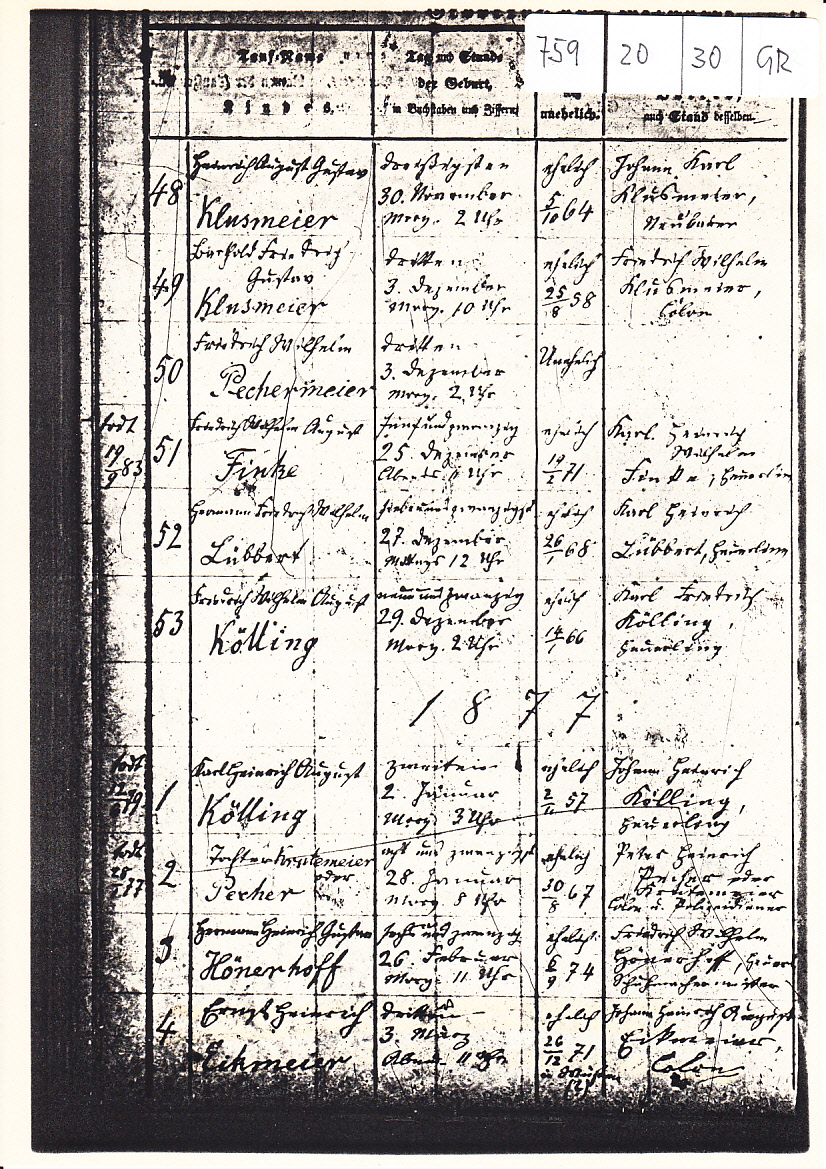 759 20 30 GR
Tauf-Name
Kindes.
Tag und Stunde
der Geburt,
in Buchstaben und Ziffern
unehelich.
auch Stand desselben.
48
Heinrich August Gustav
Klusmeier
dreißigsten
30. November
Morg. 2 Uhr
ehelich
5/10 64
Johann Karl
Klusmeier,
Neubauer
49
Barthold Friedrich
Gustav
Klusmeier
dritten
3. Dezember
Morg. 10 Uhr
ehelich
25/8 58
Friedrich Wilhelm
Klusmeier,
Colon
50
Friedrich Wilhelm
Pechermeier
dritten
3. Dezember
Morg. 2 Uhr
Unehelich
todt
19/9 83
51
Friedrich Wilhelm August
Finke
fünfundzwanzig
25. Dezember
Abends Uhr
ehelich
19/2 71
Karl Heinrich
Wilhelm
Finke, Heuerling
52
Hermann Friedrich Wilhelm
Lübbert
siebenundzwanzigst
27. Dezember
Mittags 12 Uhr
ehelich
26/1 68
Karl Heinrich
Lübbert, Heuerling
53
Friedrich Wilhelm August
Kölling
neunundzwanzig
29. Dezember
Morg. 2 Uhr
ehelich
14/1 66
Karl Friedrich
Kölling,
Heuerling
1877
todt
1
Karl Heinrich August
Kölling
zweiten
2. Januar
Morg. 3 Uhr
ehelich
2/11 57
Johann Heinrich
Kölling,
Heuerling
todt
2
Tochter Krutemeier
oder
Pecher
acht und zwanzigst
28. Januar
Morg. 8 Uhr
ehelich
30/8 67
Peter Heinrich
Pecher oder
Krutemeier
Colon u. Polizeidiener
3
Hermann Heinrich Gustav
Hönerhoff
sechsundzwanzig
26. Februar
Morg. 11 Uhr
ehelich
6/9 74
Friedrich Wilhelm
Hönerhoff, Heuerl
Schuhmachermeister
4
Ernst Heinrich
Eikmeier
dritten
3. März
Abends 11 Uhr
ehelich
26/12 71
Johann Heinrich August
Eikmeier,
Colon